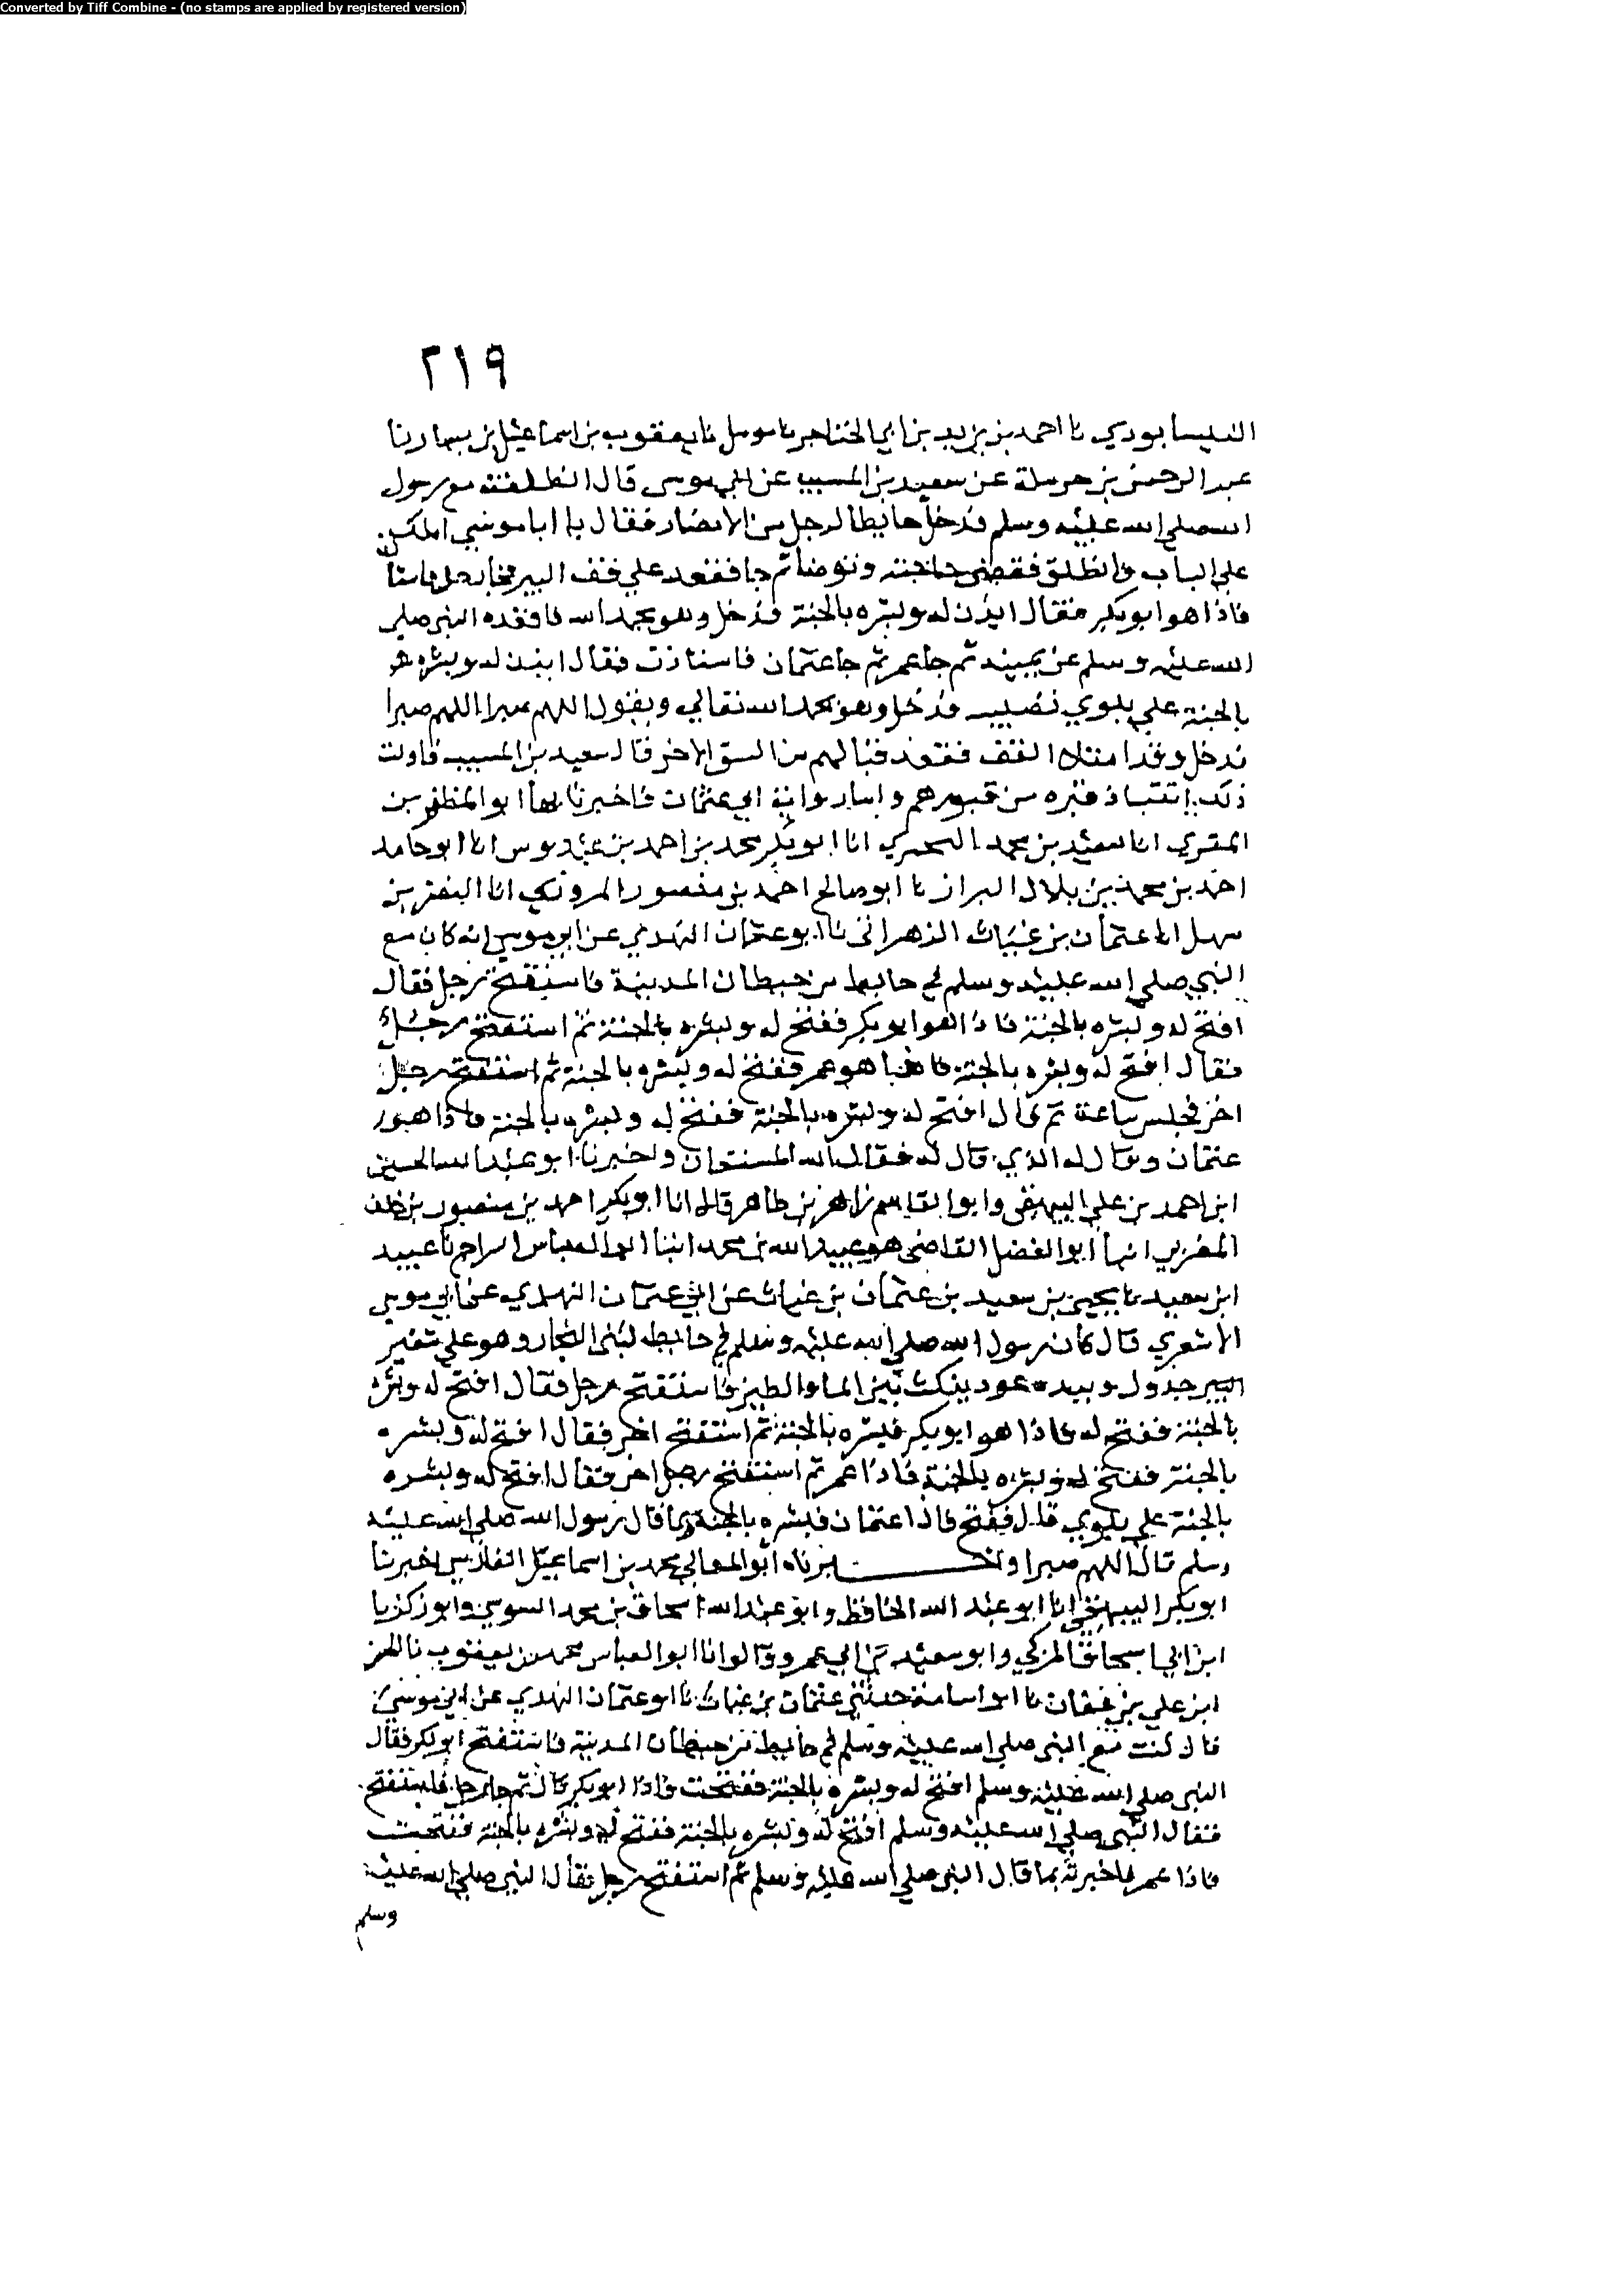 Converted by Tiff Combine - (no stamps are applied by registered version)
٢١٩
النيسابوري نا احمد بن يزيد بن ابي الخناجر نا موسل نا يعقوب بن اسماعيل بن يسار نا
عبد الرحمن بن حرملة عن سعيد بن المسيب عن ابي موسى قال انطلقت مع رسول
الله صلي الله عليه وسلم فدخل حايطا لرجل من الانصار فقال يا ابا موسي املك
علي الباب وانطلق فقضى حاجته وتوضا ثم جا فقعد علي قف البير فجا رجل
فاذا هو ابو بكر فقال ايذن له وبشره بالجنة فدخل وهو يحمد الله فاقعده النبي صلي
الله عليه وسلم عن يمينه ثم جا عمر ثم جا عثمان فاستاذن فقال ايذن له وبشره
بالجنة علي بلوي تصيبه فدخل وهو يحمد الله تعالي ويقول اللهم صبرا اللهم صبرا
فدخل وقد امتلا القف فقعد قبالهم من الشق الاخر قال سعيد بن المسيب فاولت
ذلك قبره من قبورهم واما رواية ابي عثمان فاخبرنا بها ابو المظفر بن
المقري انا سعيد بن محمد البحيري انا ابو بكر محمد بن احمد بن عبدوس انا ابو حامد
احمد بن محمد بن بلال البزاز نا ابو صالح احمد بن منصور المروزي انا النضر بن
سهل انا عثمان بن غياث الزهراني نا ابو عثمان النهدي عن ابي موسي انه كان مع
النبي صلي الله عليه وسلم في حايط من حيطان المدينة فاستفتح رجل فقال
افتح له وبشره بالجنة فاذا هو ابو بكر ففتح له وبشره بالجنة ثم استفتح رجل
فقال افتح له وبشره بالجنة هو عمر ففتح له وبشره بالجنة ثم استفتح رجل
اخر فجلس ساعة ثم قال افتح له وبشره بالجنة ففتح له وبشره بالجنة فاذا هو
عثمان وقال له الذي قال له فقال الله المستعان واخبرنا ابو عبد الله الحسين
ابن احمد بن علي البيهقي وابو القاسم زاهر بن طاهر قالا انا ابو بكر احمد بن منصور بن خلف
المغربي انبا ابو الفضل القاضي هو عبيد الله بن محمد انبنا ابو العباس السراج نا عبيد
ابن سعيد نا يحيى بن سعيد بن عثمان بن غياث عن ابي عثمان النهدي عن ابي موسي
الاشعري قال كان رسول الله صلي الله عليه وسلم في حايط لبني النجار وهو علي شفير
البير جدول وبيده عود ينكت بين الما والطين فاستفتح رجل فقال افتح له وبشره
بالجنة ففتح له فاذا هو ابو بكر فبشره بالجنة ثم استفتح اخر فقال افتح له وبشره
بالجنة ففتح له وبشره بالجنة فاذا عمر ثم استفتح رجل اخر فقال افتح له وبشره
بالجنة علي بلوي قال ففتح فاذا عثمان فبشره بالجنة بما قال رسول الله صلي الله عليه
وسلم قال اللهم صبرا واخبرناه ابو المعالي محمد بن اسماعيل الفارسي اخبرنا
ابو بكر البيهقي انا ابو عبد الله الحافظ وابو عبد الله اسحاق بن محمد السوسي وابو زكريا
ابن ابي اسحاق المزكي وابو سعيد بن ابي عمرو قالوا انا ابو العباس محمد بن يعقوب نا الحسن
ابن علي بن عفان نا ابو اسامة حدثني عثمان بن غياث نا ابو عثمان النهدي عن ابي موسي
قال كنت مع النبي صلي الله عليه وسلم في حايط من حيطان المدينة فاستفتح ابو بكر فقال
النبي صلي الله عليه وسلم افتح له وبشره بالجنة ففتحت فاذا ابو بكر قال ثم جا رجل فاستفتح
فقال النبي صلي الله عليه وسلم افتح له وبشره بالجنة ففتح له وبشره بالجنة ففتحت
فاذا عمر فاخبرته بما قال النبي صلي الله عليه وسلم ثم استفتح رجل فقال النبي صلي الله عليه
وسلم